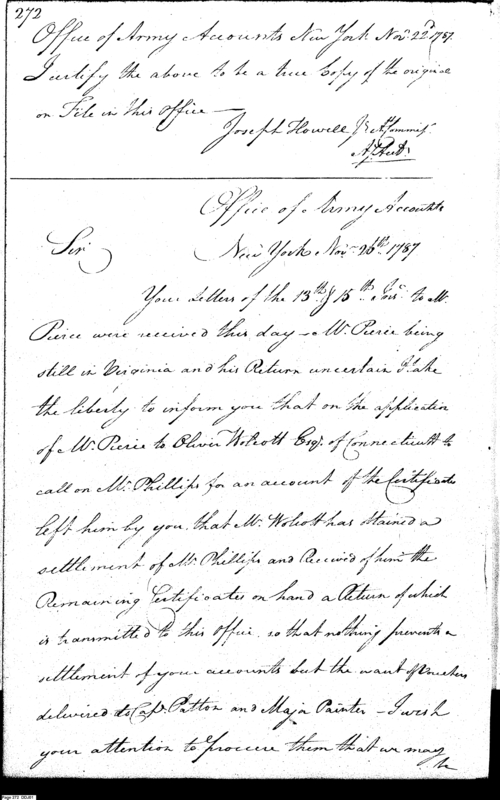 272
Office of Army Accounts New York Novr. 22d. 1787.
I certify the above to be a true Copy of the original
on File in this office —
Joseph Howell Jr. A Commis.
Office of Army Accounts
Sir New York Novr. 26th. 1787
Your Letters of the 13th & 15th to Mr.
Pierce were received this day — Mr. Pierce being
still in Virginia and his Return uncertain I take
the liberty to inform you that on the application
of Mr. Pierce to Oliver Wolcott Esqr. of Connecticutt to
call on Mr. Phillips for an account of the Certificates
left him by you, that Mr. Wolcott has obtained a
settlement of Mr. Phillips and Received of him the
Remaining Certificates on hand a Return of which
is transmitted to this Office, so that nothing prevents a
settlement of your accounts but the want of Vouchers
delivered to Capt. Patton and Major Painter — I wish
your attention to procure them that we may
be
Page 272 DEIJ01